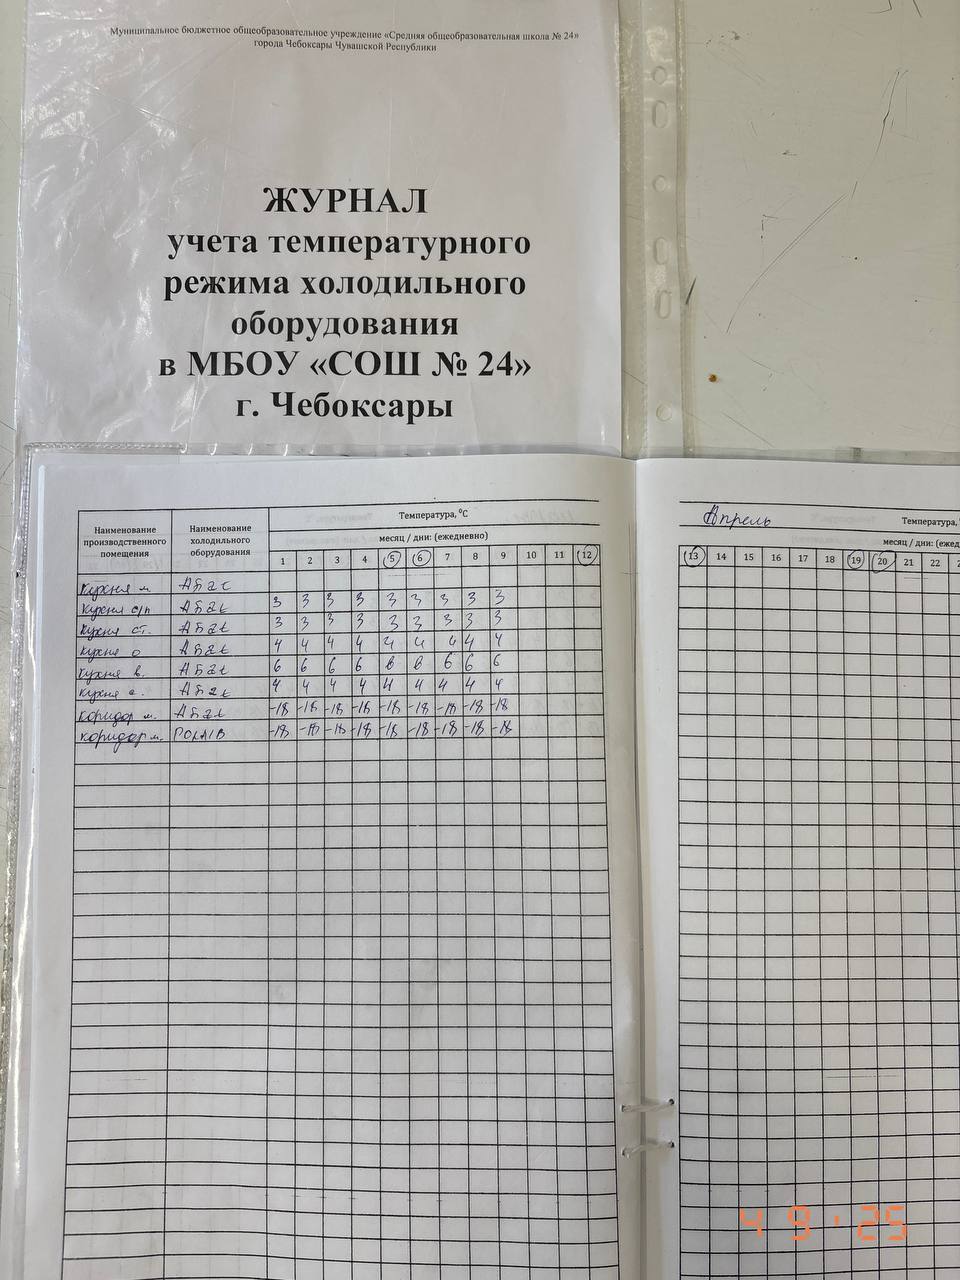 Муниципальное бюджетное общеобразовательное учреждение «Средняя общеобразовательная школа № 24»
города Чебоксары Чувашской Республики
ЖУРНАЛ
учета температурного
режима холодильного
оборудования
в МБОУ «СОШ № 24»
г. Чебоксары
Наименование производственного помещения
Наименование холодильного оборудования
Температура, ⁰С
месяц / дни: (ежедневно)
1 2 3 4 5 6 7 8 9 10 11 12
Кухня м. Абат
Кухня с/п Абат 3 3 3 3 3 3 3 3 3
Кухня ст. Абат 3 3 3 3 3 3 3 3 3
Кухня о Абат 4 4 4 4 4 4 4 4 4
Кухня в. Абат 6 6 6 6 6 6 6 6 6
Кухня с. Абат 4 4 4 4 4 4 4 4 4
коридор м. Абат -18 -18 -18 -18 -18 -18 -18 -18 -18
коридор м. -18 -18 -18 -18 -18 -18 -18 -18 -18
Апрель
Температура,
месяц / дни: (ежед
13 14 15 16 17 18 19 20 21 22 2
4 9 ' 25